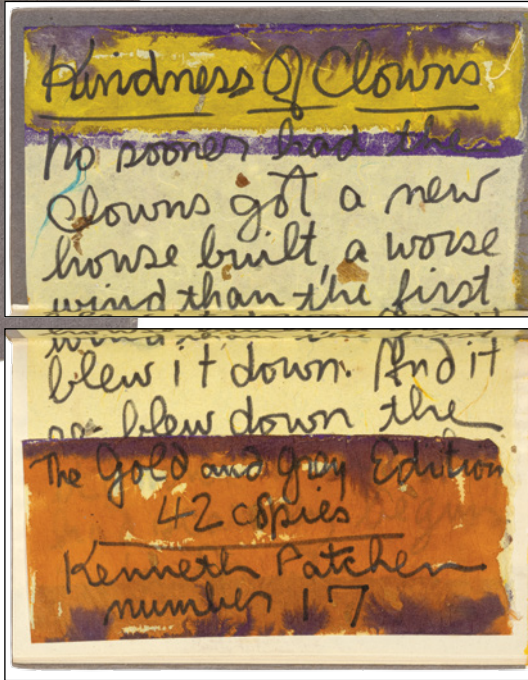 Kindness Of Clowns
No sooner had the
Clowns got a new
house built, a worse
wind than the first
blew it down. And it
blew down the
The Gold and Grey Edition
42 copies
Kenneth Patchen
number 17